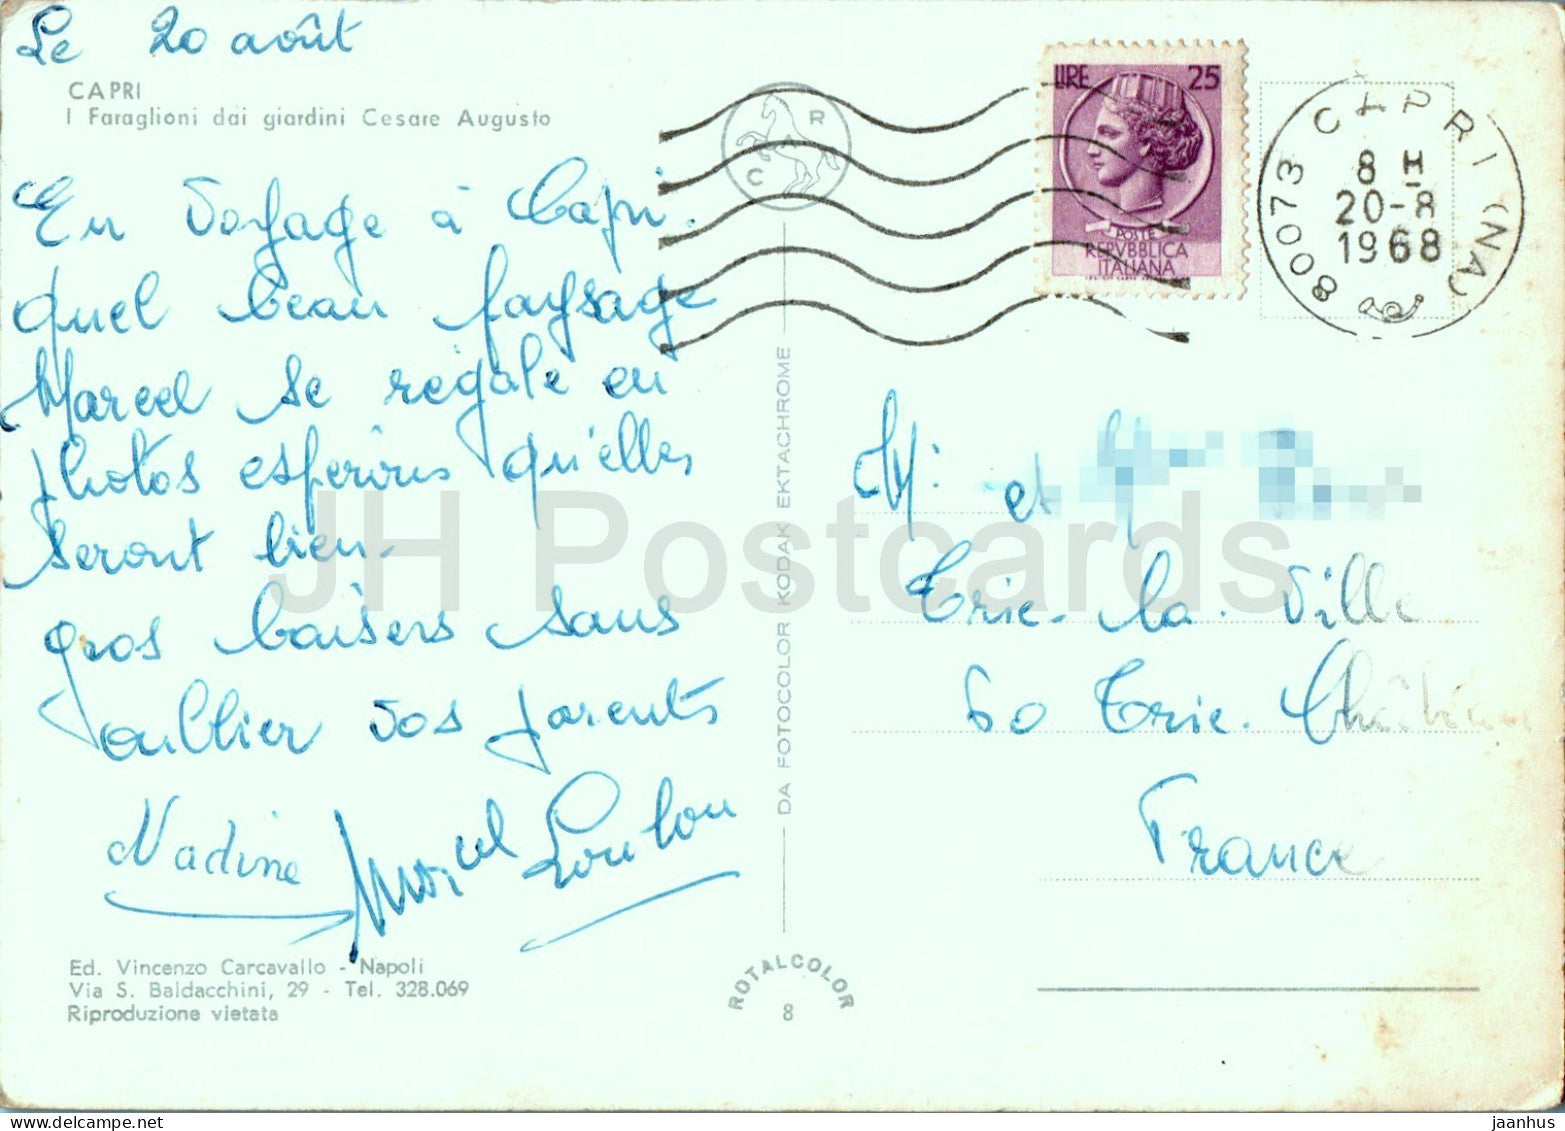 Le 20 août
CAPRI
I Faraglioni dai giardini Cesare Augusto
En voyage à Capri.
Quel beau paysage
Marcel se régale en
photos espérons qu'elles
seront bien.
gros baisers sans
oublier vos parents
Nadine Marcel Loulou
Ed. Vincenzo Carcavallo - Napoli
Via S. Baldacchini, 29 - Tel. 328.069
Riproduzione vietata
C A R
DA FOTOCOLOR KODAK EKTACHROME
ROTALCOLOR
8
LIRE 25
POSTE
REPVBBLICA
ITALIANA
80073 CAPRI (NA)
8 H
20-8
1968
M. et
Trie-la-Ville
60 Trie-Château
France
JH Postcards
jaanhus | delcampe.net